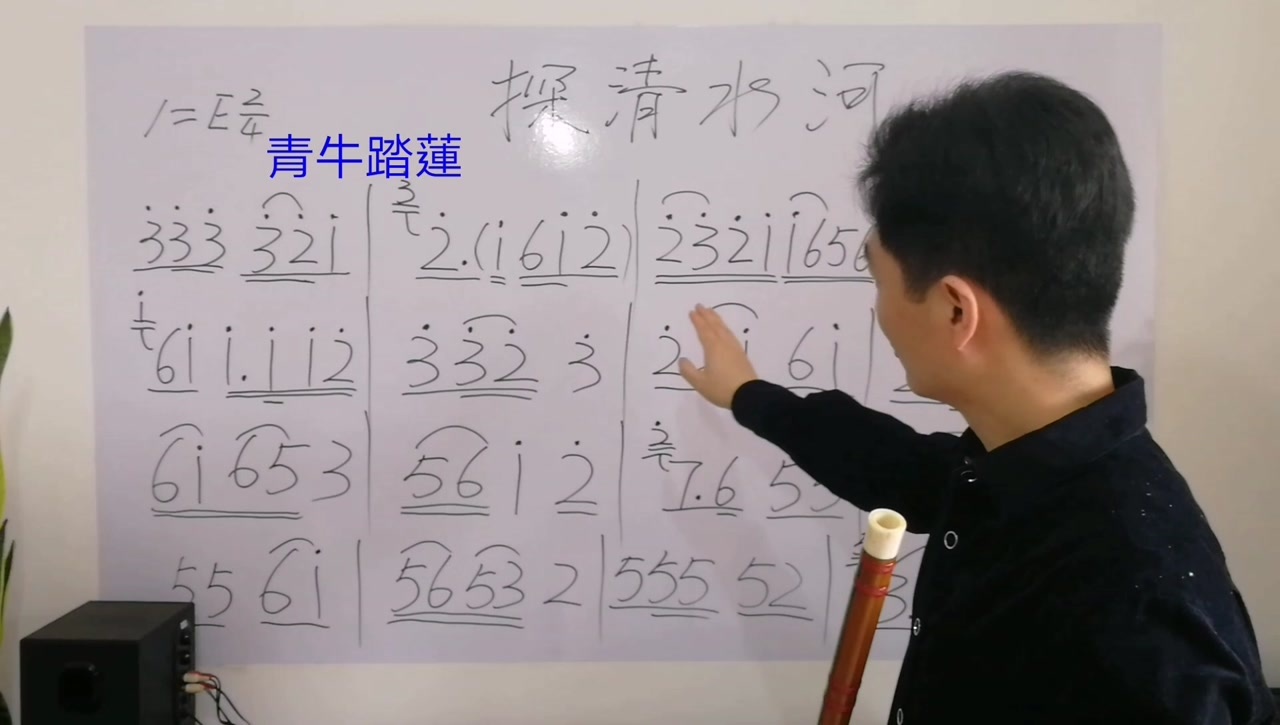 探清水河
1=E 2/4
青牛踏蓮
3̇3̇3̇ 3̇2̇1̇ | 2̇.(1̇ 61̇2̇) | 2̇3̇2̇1̇ 1̇656
61̇ 1̇.1̇ 1̇2̇ | 3̇3̇2̇ 3̇ | 2̇ 1̇ 61̇ |
61̇ 65 3 | 56 1̇ 2̇ | 7.6 53
55 61̇ | 5653 2 | 555 52 | 3